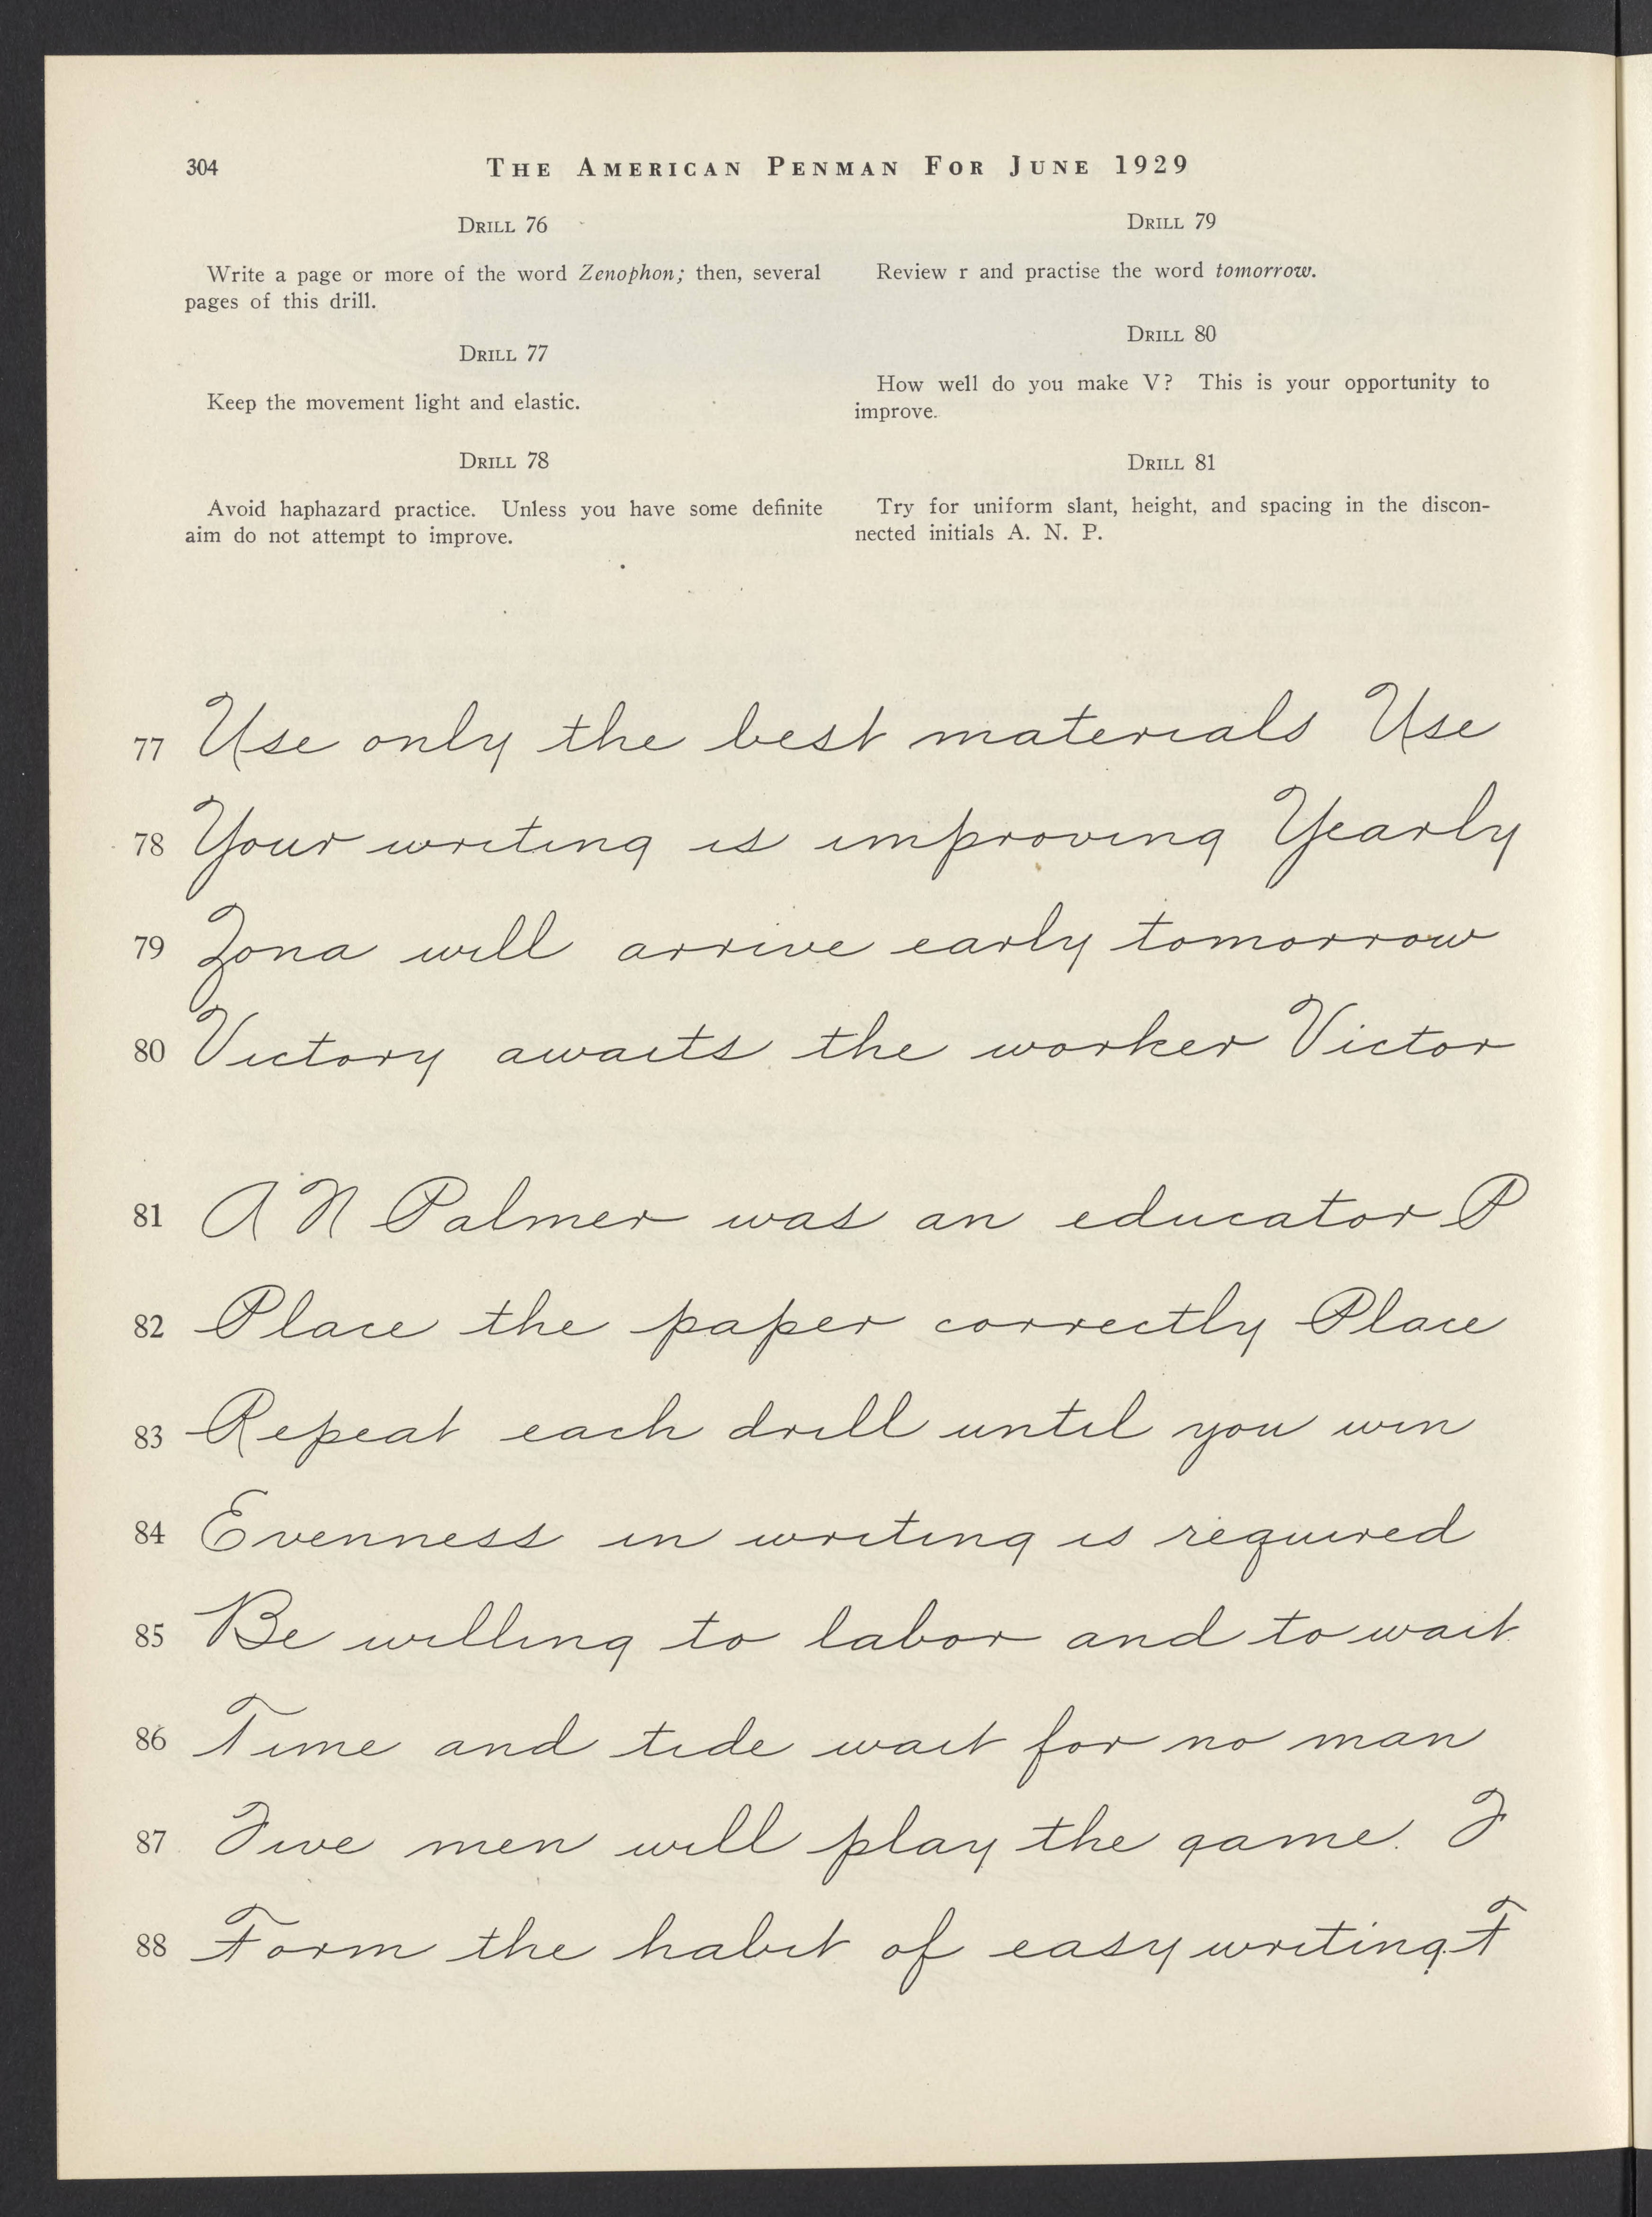 304
THE AMERICAN PENMAN FOR JUNE 1929
DRILL 76
Write a page or more of the word Zenophon; then, several
pages of this drill.
DRILL 77
Keep the movement light and elastic.
DRILL 78
Avoid haphazard practice. Unless you have some definite
aim do not attempt to improve.
DRILL 79
Review r and practise the word tomorrow.
DRILL 80
How well do you make V? This is your opportunity to
improve.
DRILL 81
Try for uniform slant, height, and spacing in the discon-
nected initials A. N. P.
77 Use only the best materials Use
78 Your writing is improving Yearly
79 Zona will arrive early tomorrow
80 Victory awaits the worker Victor
81 A N Palmer was an educator P
82 Place the paper correctly Place
83 Repeat each drill until you win
84 Evenness in writing is required
85 Be willing to labor and to wait
86 Time and tide wait for no man
87 Five men will play the game. F
88 Form the habit of easy writing. F